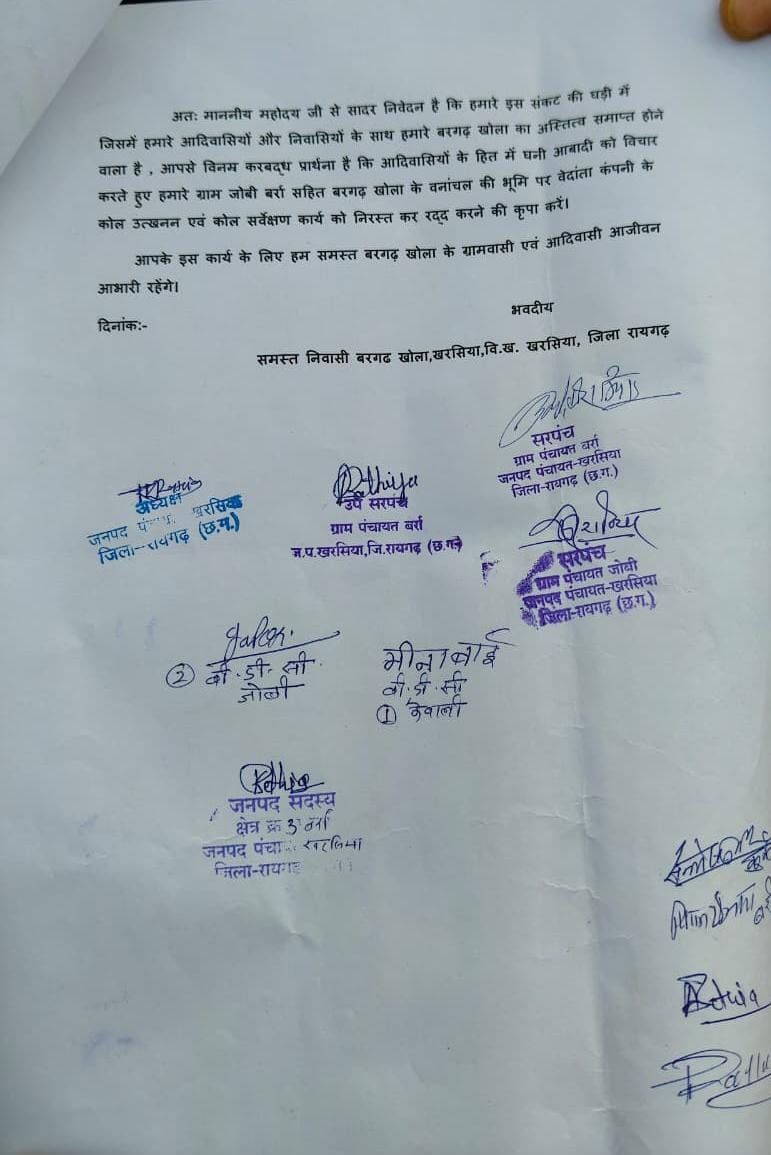 अतः माननीय महोदय जी से सादर निवेदन है कि हमारे इस संकट की घड़ी में
जिसमें हमारे आदिवासियों और निवासियों के साथ हमारे बरगढ़ खोला का अस्तित्व समाप्त होने
वाला है , आपसे विनम्र करबद्ध प्रार्थना है कि आदिवासियों के हित में घनी आबादी को विचार
करते हुए हमारे ग्राम जोबी बर्रा सहित बरगढ़ खोला के वनांचल की भूमि पर वेदांता कंपनी के
कोल उत्खनन एवं कोल सर्वेक्षण कार्य को निरस्त कर रद्द करने की कृपा करें।
आपके इस कार्य के लिए हम समस्त बरगढ़ खोला के ग्रामवासी एवं आदिवासी आजीवन
आभारी रहेंगे।
भवदीय
दिनांक:-
समस्त निवासी बरगढ खोला,खरसिया,वि.ख. खरसिया, जिला रायगढ़
सरपंच
ग्राम पंचायत बर्रा
जनपद पंचायत-खरसिया
जिला-रायगढ़ (छ.ग.)
अध्यक्ष
जनपद खरसिया
जिला-रायगढ़ (छ.ग.)
Rathiya
उप सरपंच
ग्राम पंचायत बर्रा
ज.प.खरसिया,जि.रायगढ़ (छ.ग.)
सरपंच
ग्राम पंचायत जोबी
जनपद पंचायत-खरसिया
जिला-रायगढ़ (छ.ग.)
② बी.डी.सी.
जोबी
मीनाबाई
बी.डी.सी
①
जनपद सदस्य
क्षेत्र क्र 3 बर्रा
जनपद पंचा खरसिया
जिला-रायगढ़